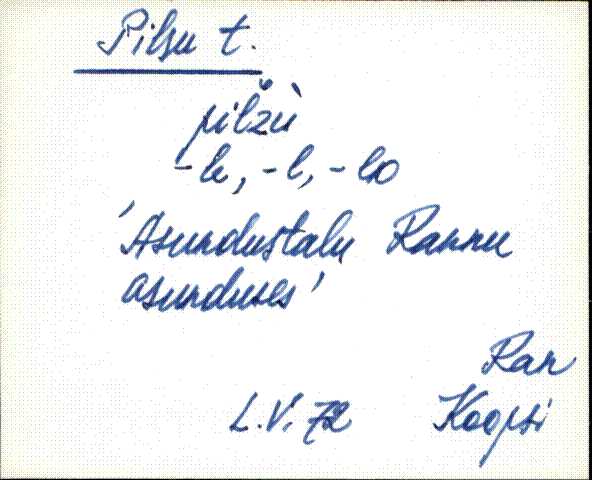 Pilsu t.
pilzù
-le, -l, -lo
'Asundustalu Rannu
asunduses'
Ran
L.V. 72 Koopsi